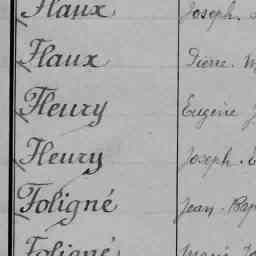 Flaux Joseph.
Flaux Pierre. M
Fleury Eugène J
Fleury Joseph. E
Foligné Jean-Bap
Foligné Marie